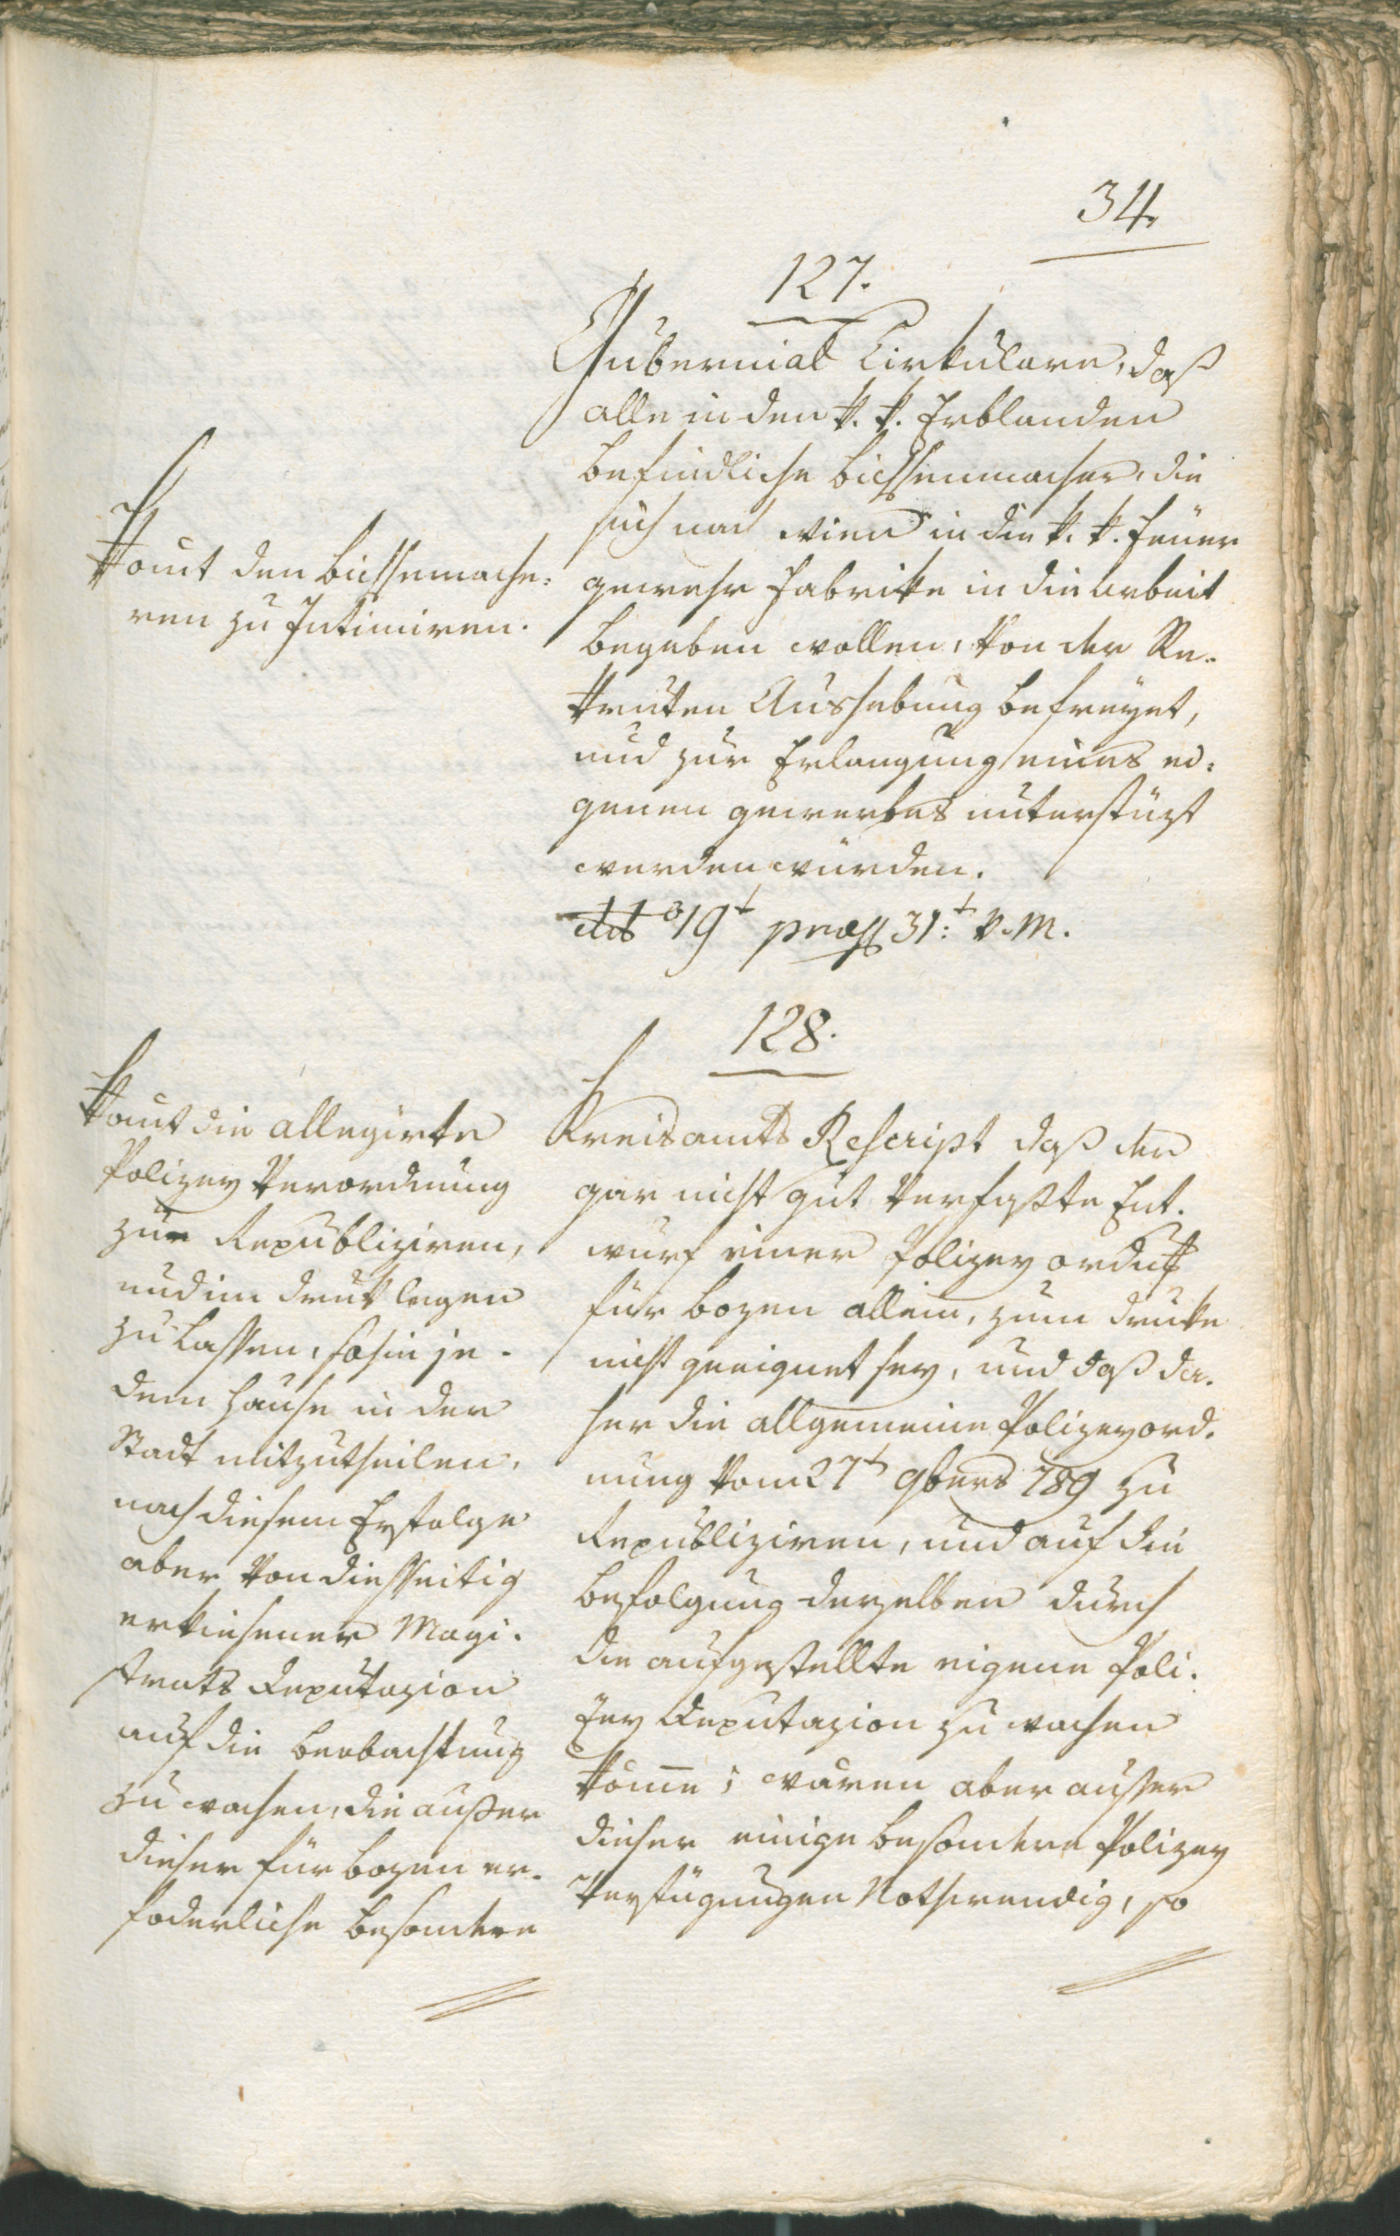 34.
127.
Gubernial Cirkulare, daß
alle in den k. k. Erblanden
befindliche bichsenmacher, die
sich nach wien in die k. k. Feüer
gewehr Fabrike in die arbeit
begeben wollen, von der Re-
kruten Aushebung befreyet,
und zur Erlangung eines ei-
genen gewerbes unterstüzt
werden würden.
19t praess 31:t v. M.
Komt den bichsemache-
ren zu Intimiren.
128.
Kreisamts Rescript daß der
gar nicht gut verfaßte Ent-
wurf einer Polizey ordnung
für bozen allein, zum druke
nicht geeignet sey, und daß da-
her die allgemeine Polizeyord-
nung vom 27t 9bers 789 zu
Republiziren, und auf die
befolgung derselben durch
die aufgestellte eigene Poli-
zey deputazion zu wachen
kom̄e; waren aber ausser
dieser einige besondere Polizey
Verfügungen Nothwendig, so
Komt die allegirte
Polizey Verordnung
zu Republiziren,
und in druk legen
zu lassen, sohin je-
dem hause in der
Stadt mitzutheilen,
nach diesem Erfolge
aber von diesseitig
erkiesener Magi-
strats deputazion
auf die beobachtung
zu wachen, die ausser
dieser für bozen er-
foderliche besondere